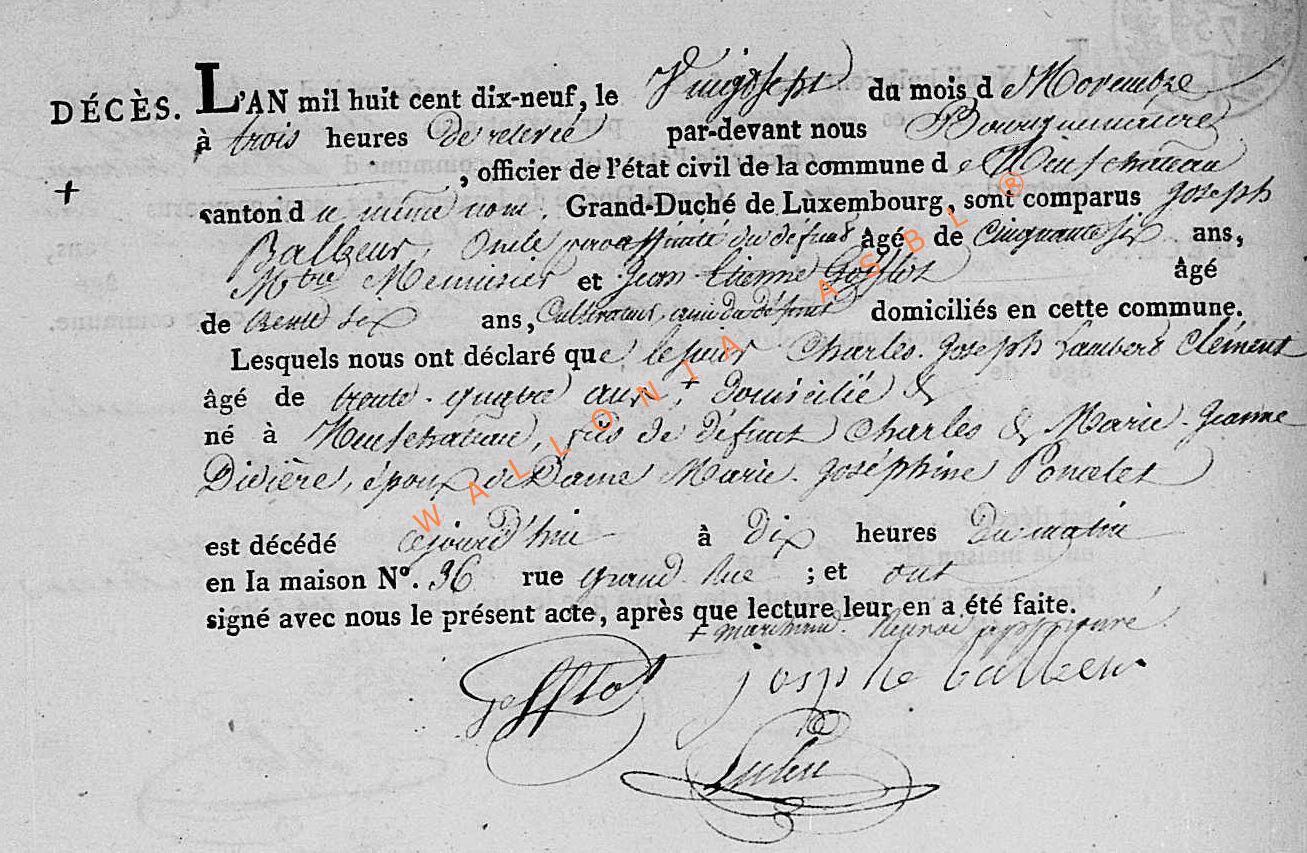 DÉCÈS. L'AN mil huit cent dix-neuf, le Vingtsept du mois de Novembre
à trois heures de relevée par-devant nous Bourguemaitre
, officier de l'état civil de la commune de Neufchateau
canton du même nom, Grand-Duché de Luxembourg, sont comparus Joseph
Balbeur, Oncle par affinité du défunt âgé de Cinquante six ans,
Mtre Menuisier et Jean Etienne Gofflot âgé
de trente six ans, Cultivateur, ami du défunt domiciliés en cette commune.
Lesquels nous ont déclaré que le sieur Charles-Joseph Lambert Clément
âgé de trente-quatre ans, + domicilié &
né à Neufchateau, fils de défunt Charles & Marie-Jeanne
Divière, époux de Dame Marie-Joséphine Poncelet
est décédé cejourd'hui à dix heures du matin
en la maison N°. 36 rue grand Rue ; et ont
signé avec nous le présent acte, après que lecture leur en a été faite.
+ marchand. Renvoi approuvé.
Gofflot
joseph balbeur
WALLONIA ASBL ®